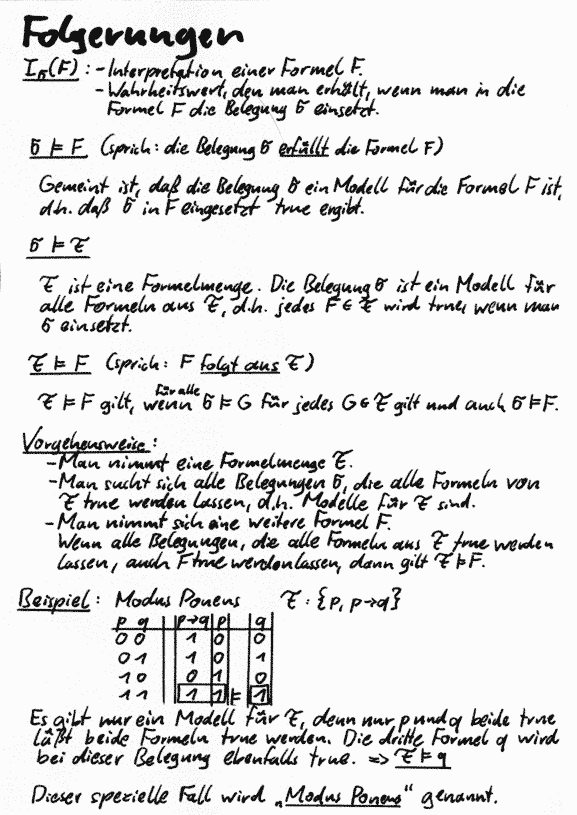 Folgerungen
I_ϭ(F) : - Interpretation einer Formel F.
- Wahrheitswert, den man erhält, wenn man in die
Formel F die Belegung ϭ einsetzt.
ϭ ⊨ F (sprich: die Belegung ϭ erfüllt die Formel F)
Gemeint ist, daß die Belegung ϭ ein Modell für die Formel F ist,
d.h. daß ϭ in F eingesetzt true ergibt.
ϭ ⊨ Ƭ
Ƭ ist eine Formelmenge. Die Belegung ϭ ist ein Modell für
alle Formeln aus Ƭ, d.h. jedes F ∈ Ƭ wird true, wenn man
ϭ einsetzt.
Ƭ ⊨ F (sprich: F folgt aus Ƭ)
für alle
Ƭ ⊨ F gilt, wenn ϭ ⊨ G für jedes G ∈ Ƭ gilt und auch ϭ ⊨ F.
Vorgehensweise:
- Man nimmt eine Formelmenge Ƭ.
- Man sucht sich alle Belegungen ϭ, die alle Formeln von
Ƭ true werden lassen, d.h. Modelle für Ƭ sind.
- Man nimmt sich eine weitere Formel F.
Wenn alle Belegungen, die alle Formeln aus Ƭ true werden
lassen, auch F true werden lassen, dann gilt Ƭ ⊨ F.
Beispiel: Modus Ponens Ƭ: {p, p→q}
p q p→q p q
0 0 1 0 0
0 1 1 0 1
1 0 0 1 0
1 1 1 1 ⊨ 1
Es gibt nur ein Modell für Ƭ, denn nur p und q beide true
läßt beide Formeln true werden. Die dritte Formel q wird
bei dieser Belegung ebenfalls true. => Ƭ ⊨ q
Dieser spezielle Fall wird „Modus Ponens“ genannt.